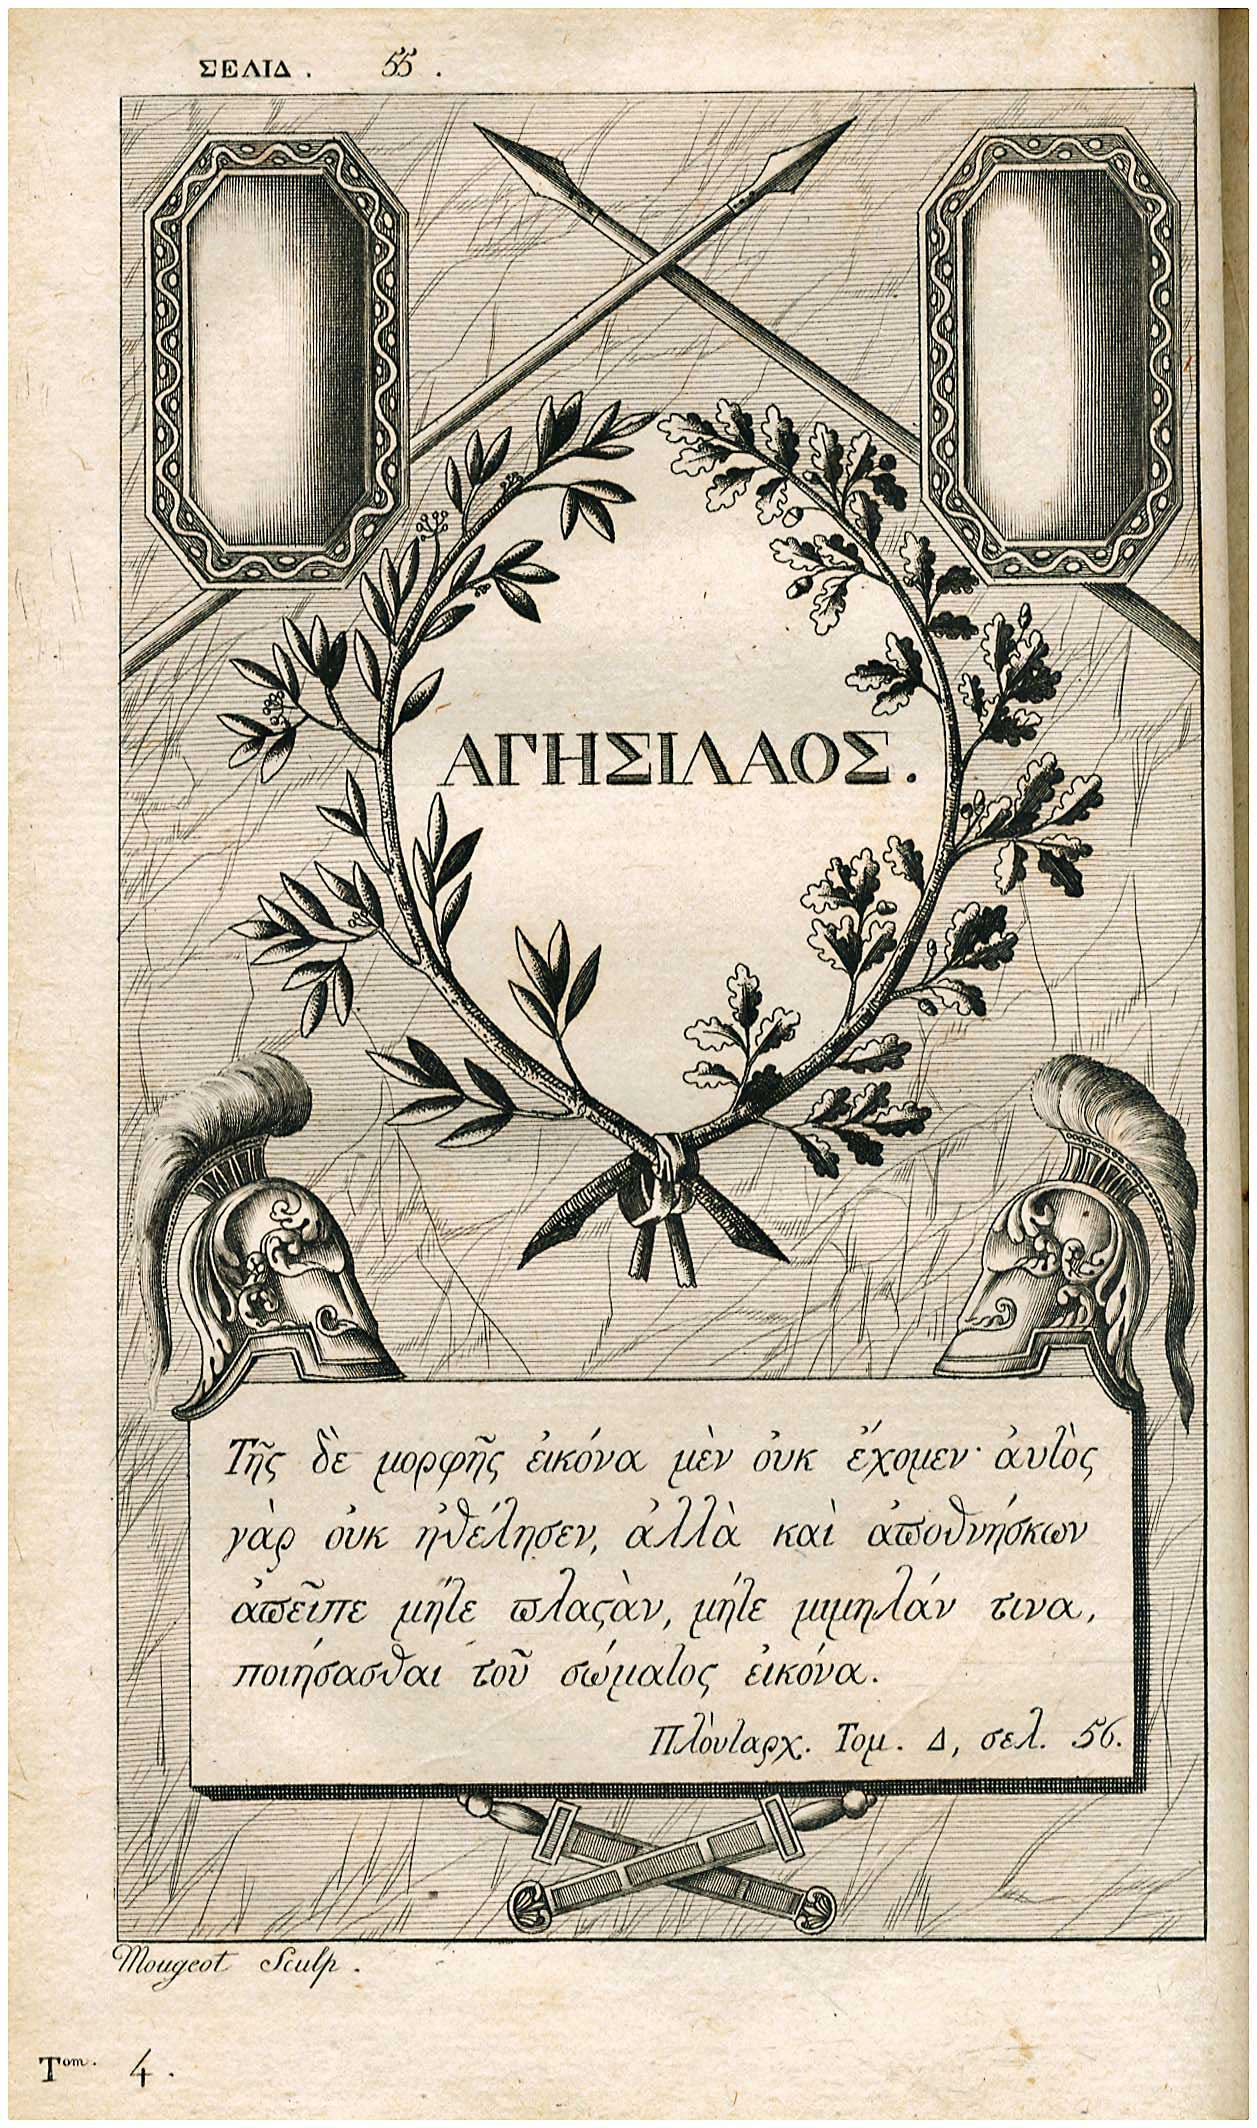 ΣΕΛΙΔ. 55.
ΑΓΗΣΙΛΑΟΣ.
Τῆς δὲ μορφῆς ἐικόνα μὲν ὀυκ ἔχομεν· ἀυτὸς
γὰρ ὀυκ ἠθέλησεν, ἀλλὰ καὶ ἀποθνήσκων
ἀπεῖπε μήτε πλαςὰν, μήτε μιμηλάν τινα,
ποιήσασθαι τοῦ σώματος ἐικόνα.
Πλὸυταρχ. Τομ. Δ, σελ. 56.
Mougeot Sculp.
Tom. 4.